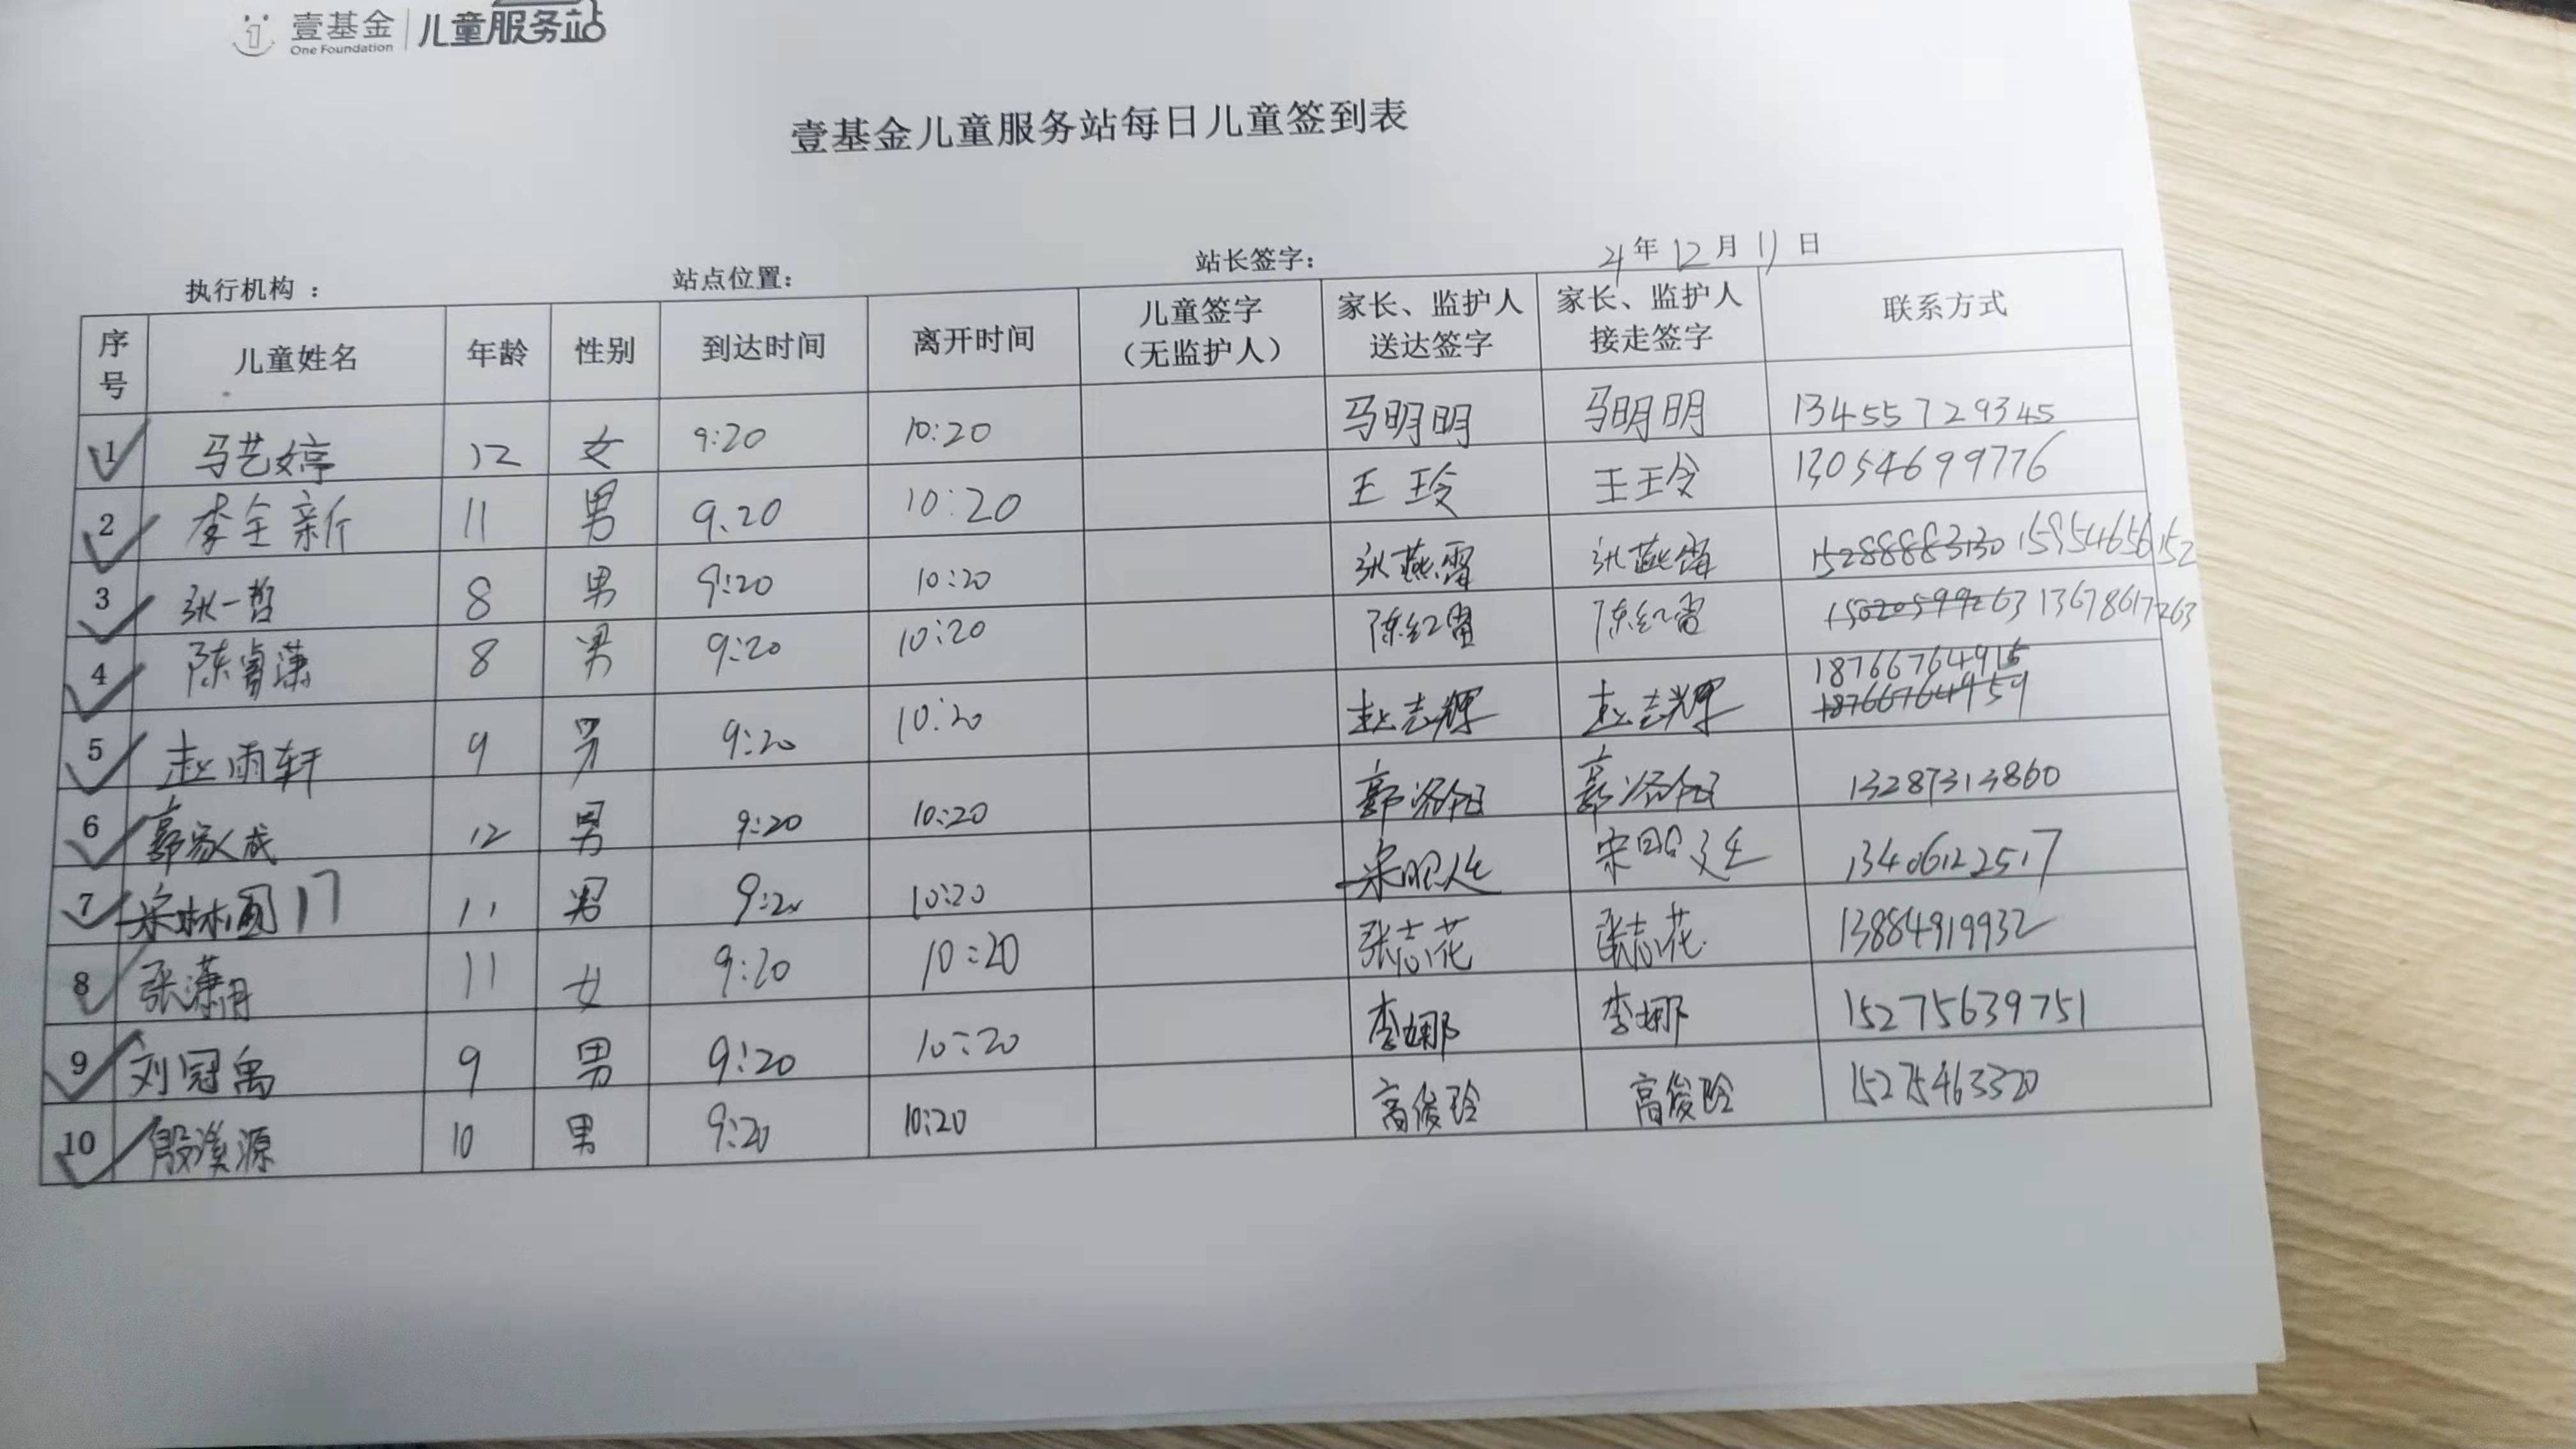 壹基金 儿童服务站
One Foundation
壹基金儿童服务站每日儿童签到表
执行机构： 站点位置： 站长签字： 21年12月11日
序号 儿童姓名 年龄 性别 到达时间 离开时间 儿童签字（无监护人） 家长、监护人送达签字 家长、监护人接走签字 联系方式
1 马艺婷 12 女 9:20 10:20 马明明 马明明 13455729345
2 李全新 11 男 9.20 10:20 王玲 王玲 13054699776
3 张一哲 8 男 9:20 10:20 张燕雷 张燕雷 15288883130 15954656152
4 陈睿潇 8 男 9:20 10:20 陈红雷 陈红雷 13678617263
5 赵雨轩 9 男 9:20 10:20 赵志辉 赵志辉 18766764915 18766764959
6 郭家成 12 男 9:20 10:20 13287313860
7 11 男 9:20 10:20 13406122517
8 张潇月 11 女 9:20 10:20 张志花 张志花 13884919932
9 刘冠禹 9 男 9:20 10:20 李娜 李娜 15275639751
10 殷溪源 10 男 9:20 10:20 高俊玲 高俊玲 15275463320